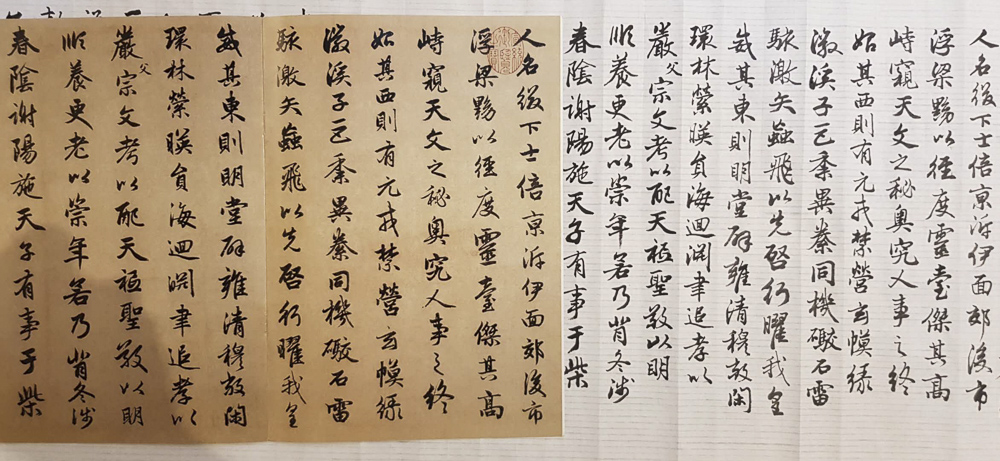 人名綴下士倍京泝伊面郊後市
浮梁黝以徑度靈臺傑其高
峙窺天文之秘奧究人事之終
始其西則有元戎禁營玄幙綠
徽溪子巨黍異絭同機礮石雷
駭激矢蝱飛以先啓行曜我皇
威其東則明堂辟雍清穆敞閑
環林縈暎員海迴淵聿追孝以
嚴父宗文考以配天祗聖敬以明
順養更老以崇年若乃背冬涉
春陰謝陽施天子有事于柴
人名綴下士倍京泝伊面郊後市
浮梁黝以徑度靈臺傑其高
峙窺天文之秘奧究人事之終
始其西則有元戎禁營玄幙綠
徽溪子巨黍異絭同機礮石雷
駭激矢蝱飛以先啓行曜我皇
威其東則明堂辟雍清穆敞閑
環林縈暎員海迴淵聿追孝以
嚴父宗文考以配天祗聖敬以明
順養更老以崇年若乃背冬涉
春陰謝陽施天子有事于柴